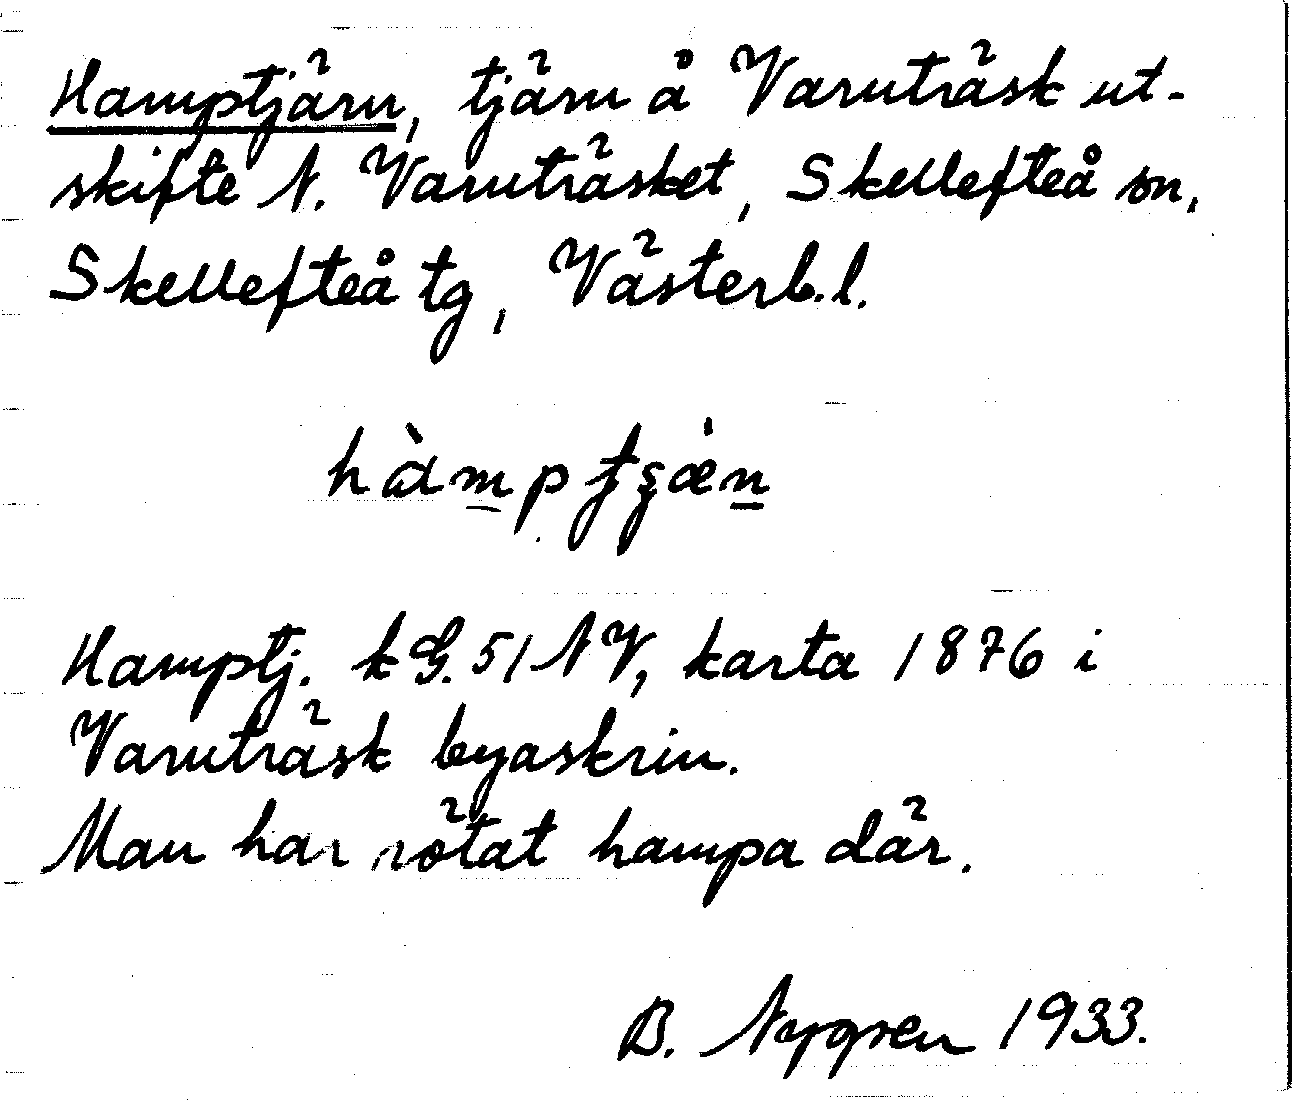 Hamptjärn, tjärn å Varuträsk ut-
skifte N. Varuträsket, Skellefteå sn,
Skellefteå tg, Västerb. l.
hàmptʂæ̀n
Hamptj. k G. 51 NV, karta 1876 i
Varuträsk byaskrin.
Man har rötat hampa där.
B. Nygren 1933.